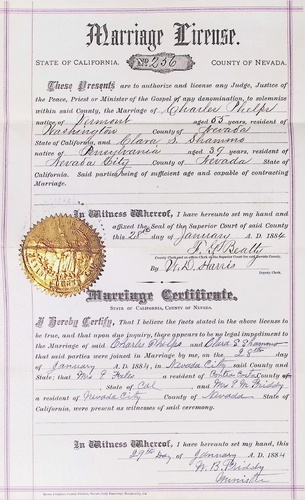 Marriage License.
STATE OF CALIFORNIA, No. 256 COUNTY OF NEVADA.
These Presents are to authorize and license any Judge, Justice of
the Peace, Priest or Minister of the Gospel of any denomination, to solemnize
within said County, the Marriage of Charles Phelps
native of Vermont aged 53 years, resident of
Washington County of Nevada
State of California, and Clara S. Shammo
native of Pennsylvania aged 39 years, resident of
Nevada City County of Nevada State of
California. Said parties being of sufficient age and capable of contracting
Marriage.
In Witness Whereof, I have hereunto set my hand and
affixed the Seal of the Superior Court of said County
this 28th day of January A. D. 1884
F. G. Beatty
County Clerk and ex-officio Clerk of the Superior Court for said Nevada County.
By W. D. Harris
Deputy Clerk.
Marriage Certificate.
STATE OF CALIFORNIA, COUNTY OF NEVADA.
I Hereby Certify, That I believe the facts stated in the above license
to be true, and that upon due inquiry, there appears to be no legal impediment
to the Marriage of said Charles Phelps and Clara S. Shammo
that said parties were joined in Marriage by me, on the 28th
day of January A. D. 1884, in Nevada City said County and
State; that Mrs a resident of Contra Costa County of
State of Cal and Mrs M. Priddy
a resident of Nevada City County of Nevada State of
California, were present as witnesses of said ceremony.
In Witness Whereof, I have hereunto set my hand this
29th Day of January A. D. 1884
W. B. Priddy
Minister